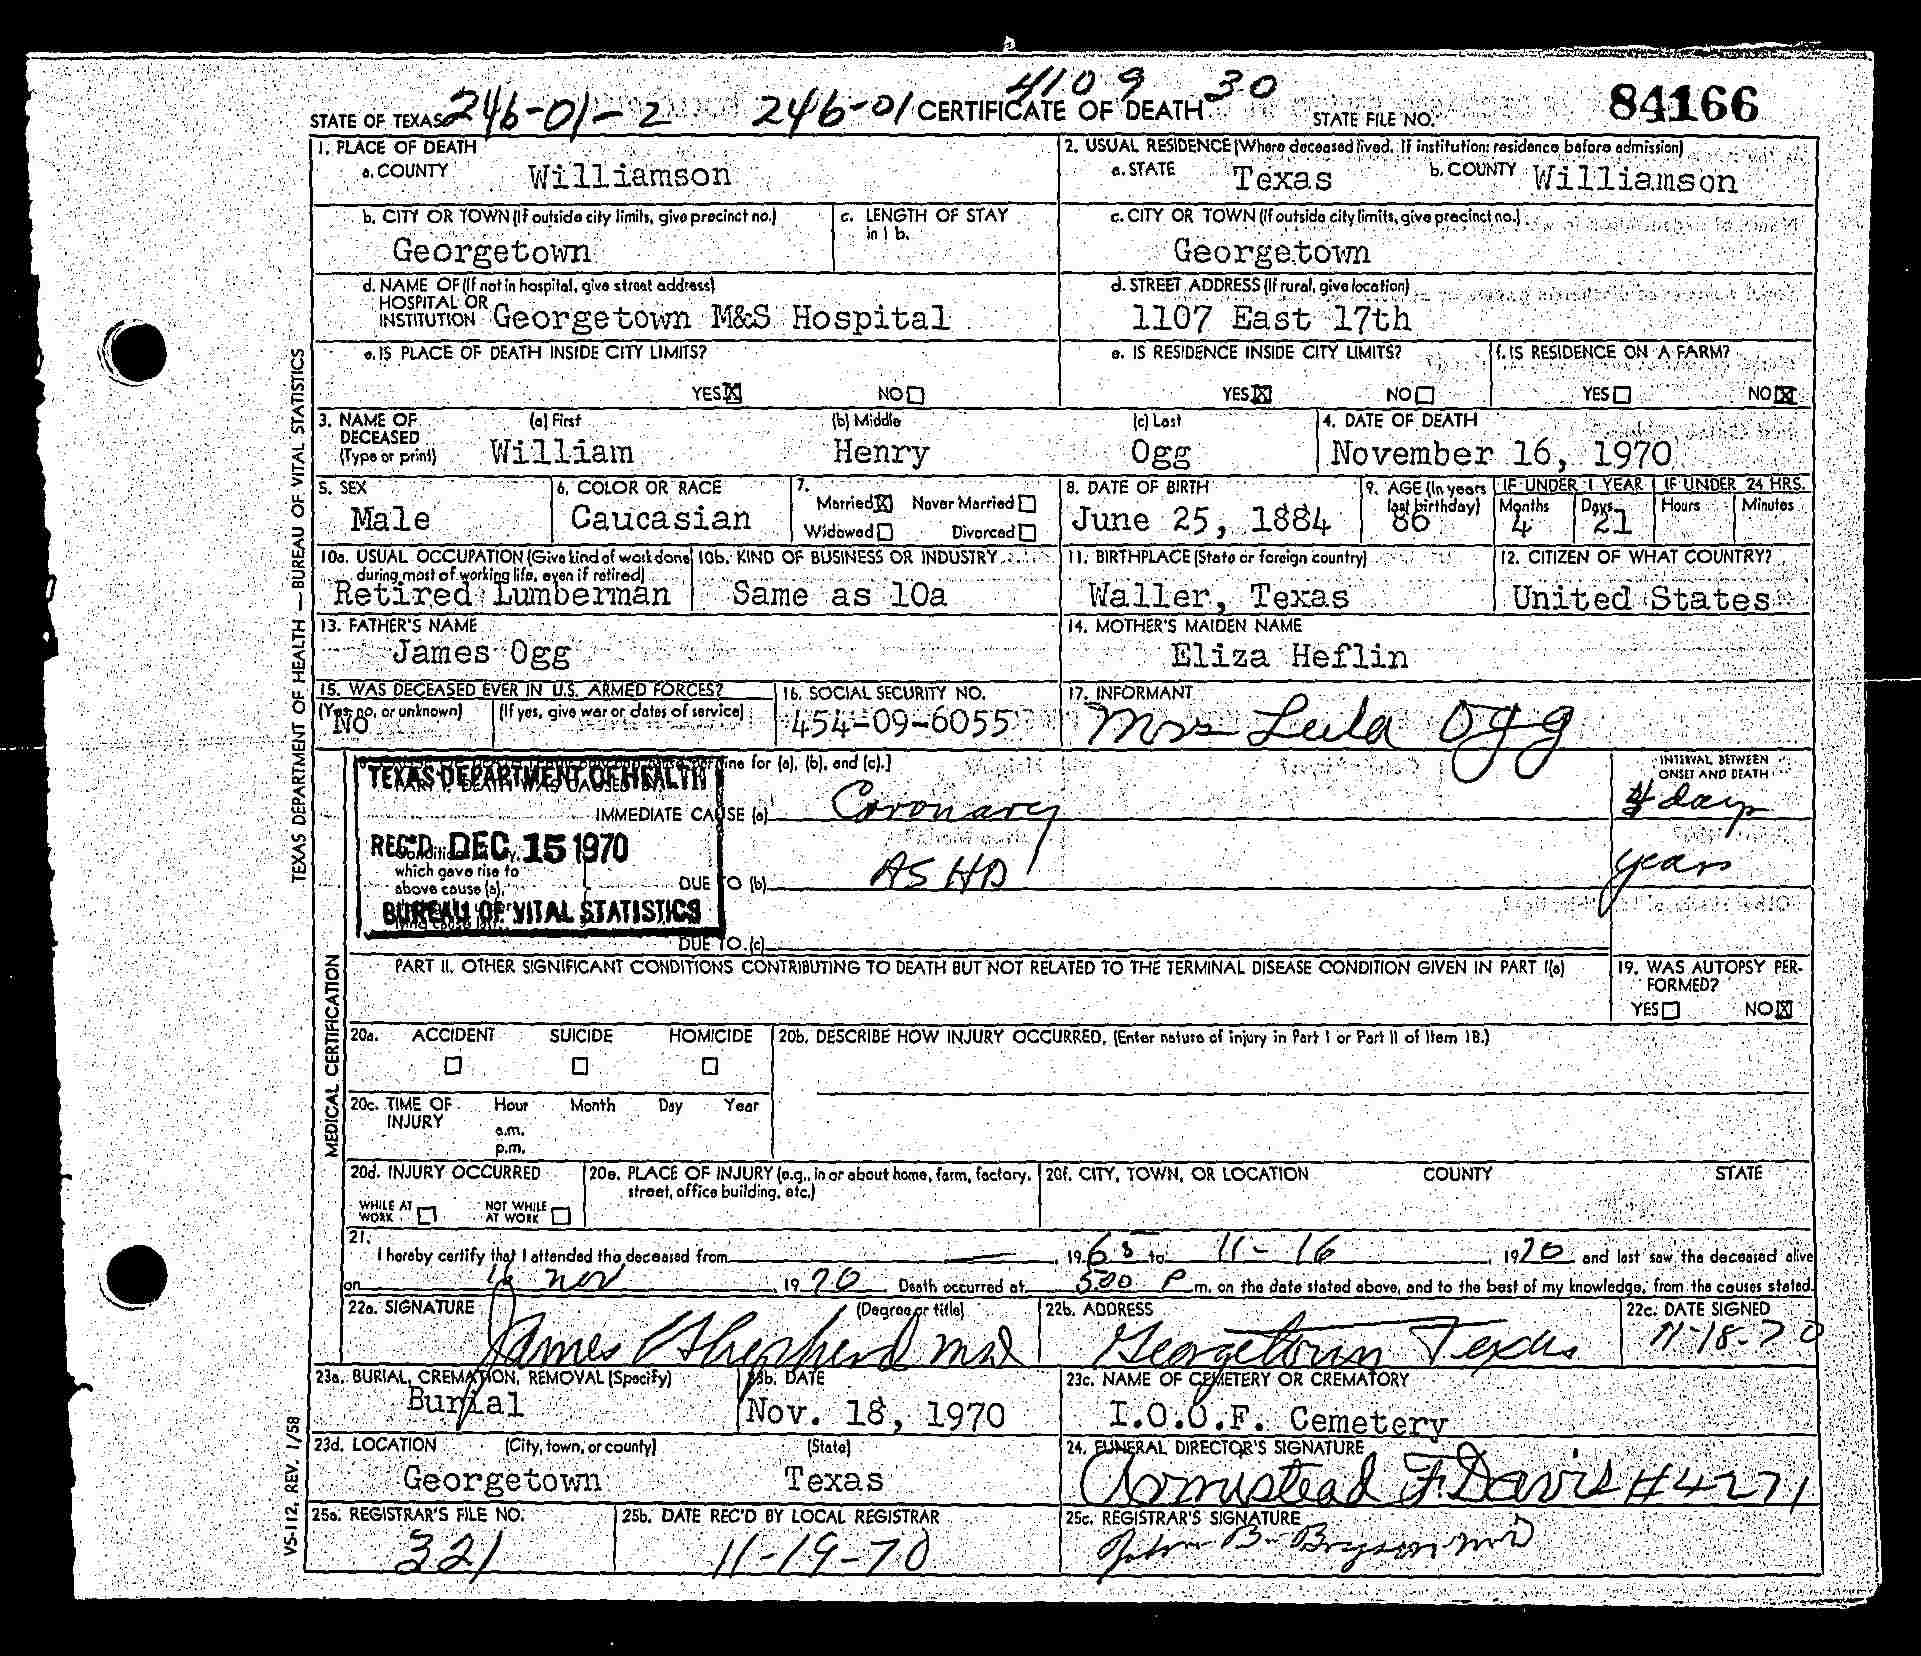 4109 30
STATE OF TEXAS 246-01-2 246-01 CERTIFICATE OF DEATH STATE FILE NO. 84166
1. PLACE OF DEATH
a. COUNTY Williamson
2. USUAL RESIDENCE (Where deceased lived. If institution: residence before admission)
a. STATE Texas b. COUNTY Williamson
b. CITY OR TOWN (If outside city limits, give precinct no.)
Georgetown
c. LENGTH OF STAY
in 1 b.
c. CITY OR TOWN (If outside city limits, give precinct no.)
Georgetown
d. NAME OF (If not in hospital, give street address)
HOSPITAL OR
INSTITUTION Georgetown M&S Hospital
d. STREET ADDRESS (If rural, give location)
1107 East 17th
e. IS PLACE OF DEATH INSIDE CITY LIMITS?
YES ☒ NO ☐
e. IS RESIDENCE INSIDE CITY LIMITS?
YES ☒ NO ☐
f. IS RESIDENCE ON A FARM?
YES ☐ NO ☒
3. NAME OF
DECEASED
(Type or print)
(a) First (b) Middle (c) Last
William Henry Ogg
4. DATE OF DEATH
November 16, 1970
5. SEX
Male
6. COLOR OR RACE
Caucasian
7.
Married ☒ Never Married ☐
Widowed ☐ Divorced ☐
8. DATE OF BIRTH
June 25, 1884
9. AGE (In years
last birthday)
86
IF UNDER 1 YEAR
Months Days
4 21
IF UNDER 24 HRS.
Hours Minutes
10a. USUAL OCCUPATION (Give kind of work done
during most of working life, even if retired)
Retired Lumberman
10b. KIND OF BUSINESS OR INDUSTRY
Same as 10a
11. BIRTHPLACE (State or foreign country)
Waller, Texas
12. CITIZEN OF WHAT COUNTRY?
United States
13. FATHER'S NAME
James Ogg
14. MOTHER'S MAIDEN NAME
Eliza Heflin
15. WAS DECEASED EVER IN U.S. ARMED FORCES?
(Yes, no, or unknown) (If yes, give war or dates of service)
No
16. SOCIAL SECURITY NO.
454-09-6055
17. INFORMANT
Mrs Leila Ogg
line for (a), (b), and (c).]
TEXAS DEPARTMENT OF HEALTH
REC'D DEC 15 1970
BUREAU OF VITAL STATISTICS
IMMEDIATE CAUSE (a) Coronary
which gave rise to
above cause (a),
DUE TO (b) ASHD
DUE TO (c)
INTERVAL BETWEEN
ONSET AND DEATH
4 days
years
PART II. OTHER SIGNIFICANT CONDITIONS CONTRIBUTING TO DEATH BUT NOT RELATED TO THE TERMINAL DISEASE CONDITION GIVEN IN PART I(a)
19. WAS AUTOPSY PER-
FORMED?
YES ☐ NO ☒
20a. ACCIDENT SUICIDE HOMICIDE
☐ ☐ ☐
20b. DESCRIBE HOW INJURY OCCURRED. (Enter nature of injury in Part I or Part II of item 18.)
20c. TIME OF
INJURY
Hour Month Day Year
a.m.
p.m.
20d. INJURY OCCURRED
WHILE AT
WORK ☐
NOT WHILE
AT WORK ☐
20e. PLACE OF INJURY (e.g., in or about home, farm, factory,
street, office building, etc.)
20f. CITY, TOWN, OR LOCATION COUNTY STATE
21.
I hereby certify that I attended the deceased from 1965 to 11-16, 1970 and last saw the deceased alive
on 16 Nov, 1970 Death occurred at 500 P m. on the date stated above, and to the best of my knowledge, from the causes stated.
22a. SIGNATURE (Degree or title)
James Shepherd MD
22b. ADDRESS
Georgetown Texas
22c. DATE SIGNED
11-18-70
23a. BURIAL, CREMATION, REMOVAL (Specify)
Burial
23b. DATE
Nov. 18, 1970
23c. NAME OF CEMETERY OR CREMATORY
I.O.O.F. Cemetery
23d. LOCATION (City, town, or county) (State)
Georgetown Texas
24. FUNERAL DIRECTOR'S SIGNATURE
Armistead F Davis #4271
25a. REGISTRAR'S FILE NO.
321
25b. DATE REC'D BY LOCAL REGISTRAR
11-19-70
25c. REGISTRAR'S SIGNATURE
John B. Bryson MD
TEXAS DEPARTMENT OF HEALTH — BUREAU OF VITAL STATISTICS
MEDICAL CERTIFICATION
VS-112, REV. 1/58